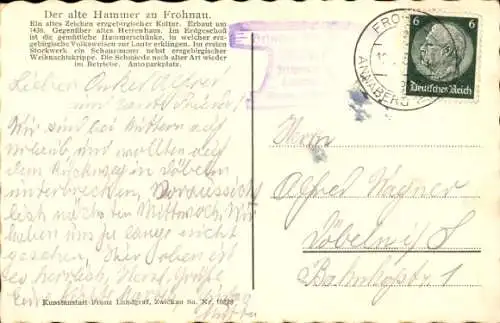 Der alte Hammer zu Frohnau.
Ein altes Zeichen erzgebirgischer Kultur. Erbaut um
1436. Gegenüber altes Herrenhaus. Im Erdgeschoß
ist die gemütliche Hammerschänke, in welcher erz-
gebirgische Volksweisen zur Laute erklingen. Im ersten
Stockwerk ein Schaumuseum nebst erzgebirgischer
Weihnachtskrippe. Die Schmiede nach alter Art wieder
im Betriebe. Autoparkplatz.
Lieben Onkel Alfred
und
Wir sind bei Muttern auf
Urlaub, und wollten auf
dem Rückweg in Döbeln
unterbrechen, Voraussicht
lich nächsten Mittwoch. Wir
haben uns so lange nicht
gesehen. Hier oben ist
es herrlich. Herzl. Grüße
Kunstanstalt Franz Landgraf, Zwickau Sa. Nr.
FRO
ANNABERG
6 6
Deutsches Reich
Herrn
Alfred Wagner
Döbeln i/S
Bahnhofstr. 1